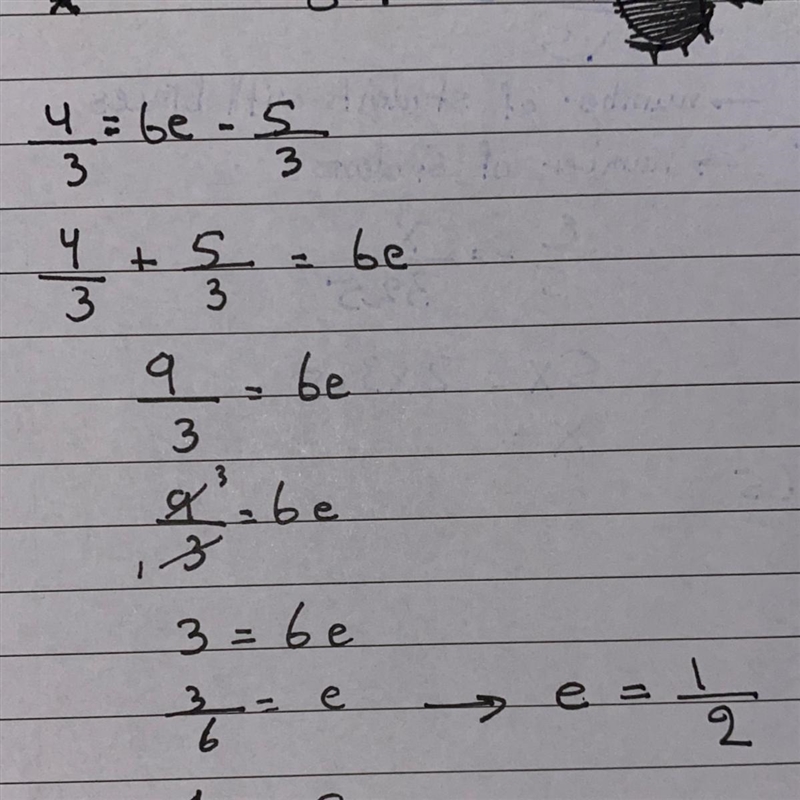 4/3 = 6e - 5/3
4/3 + 5/3 = 6e
9/3 = 6e
9/3 3 1 = 6e
3 = 6e
3/6 = e → e = 1/2